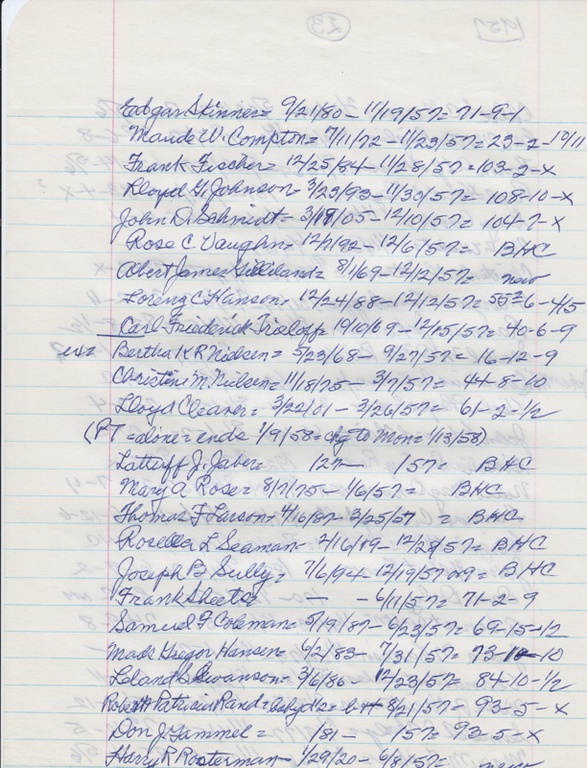 23
Edgar Skinner = 9/21/80 - 11/19/57 = 71-9-1
Maude W. Compton = 7/11/72 - 11/23/57 = 23-2-10/11
Frank Fischer = 12/25/84 - 11/28/57 = 103-2-X
Kloyd H. Johnson = 3/23/93 - 11/30/57 = 108-10-X
John D. Schmidt = 3/18/05 - 12/10/57 = 104-7-X
Rose C. Vaughn = 12/7/92 - 12/6/57 = BHC
Albert James Gilliland = 8/1/69 - 12/12/57 = new
Lorenz C Hanson = 12/24/88 - 12/12/57 = 6-4/5
Carl Friederick Trieloff 10/10/69 - 12/15/57 = 40-6-9
Bertha K R Nielsen = 5/23/68 - 9/27/57 = 16-12-9
Christine M. Nielsen = 11/18/75 - 3/7/57 = 44-8-10
Lloyd Cleaver = 3/22/01 - 3/26/57 = 61-2-1/2
(PT = alone = ends 1/9/58 = chg to Mon = 1/13/58)
Latteff J. Jaber = 127 - /57 = BHC
Mary A Rose = 8/7/75 - 1/6/57 = BHC
Thomas F Larson = 4/16/87 - 3/25/57 = BHC
Rosella L Seaman - 2/16/19 - 12/28/57 = BHC
Joseph B Sully = 7/6/94 - 12/19/57 = BHC
Frank Sheets - - 6/11/57 = 71-2-9
Samuel F Coleman = 5/19/87 - 6/23/57 = 69-15-12
Mads Gregor Hansen - 6/2/83 - 7/31/57 = 73-10
Leland S. Swanson = 3/6/86 - 12/23/57 = 84-10-1/2
Robert Patricia Rand = baby d/o = b+ 8/21/57 = 93-5-X
Don J. Gammel = /81 - /57 = 93-5-X
Harry R Rosterman - 1/29/20 - 6/8/57 = new